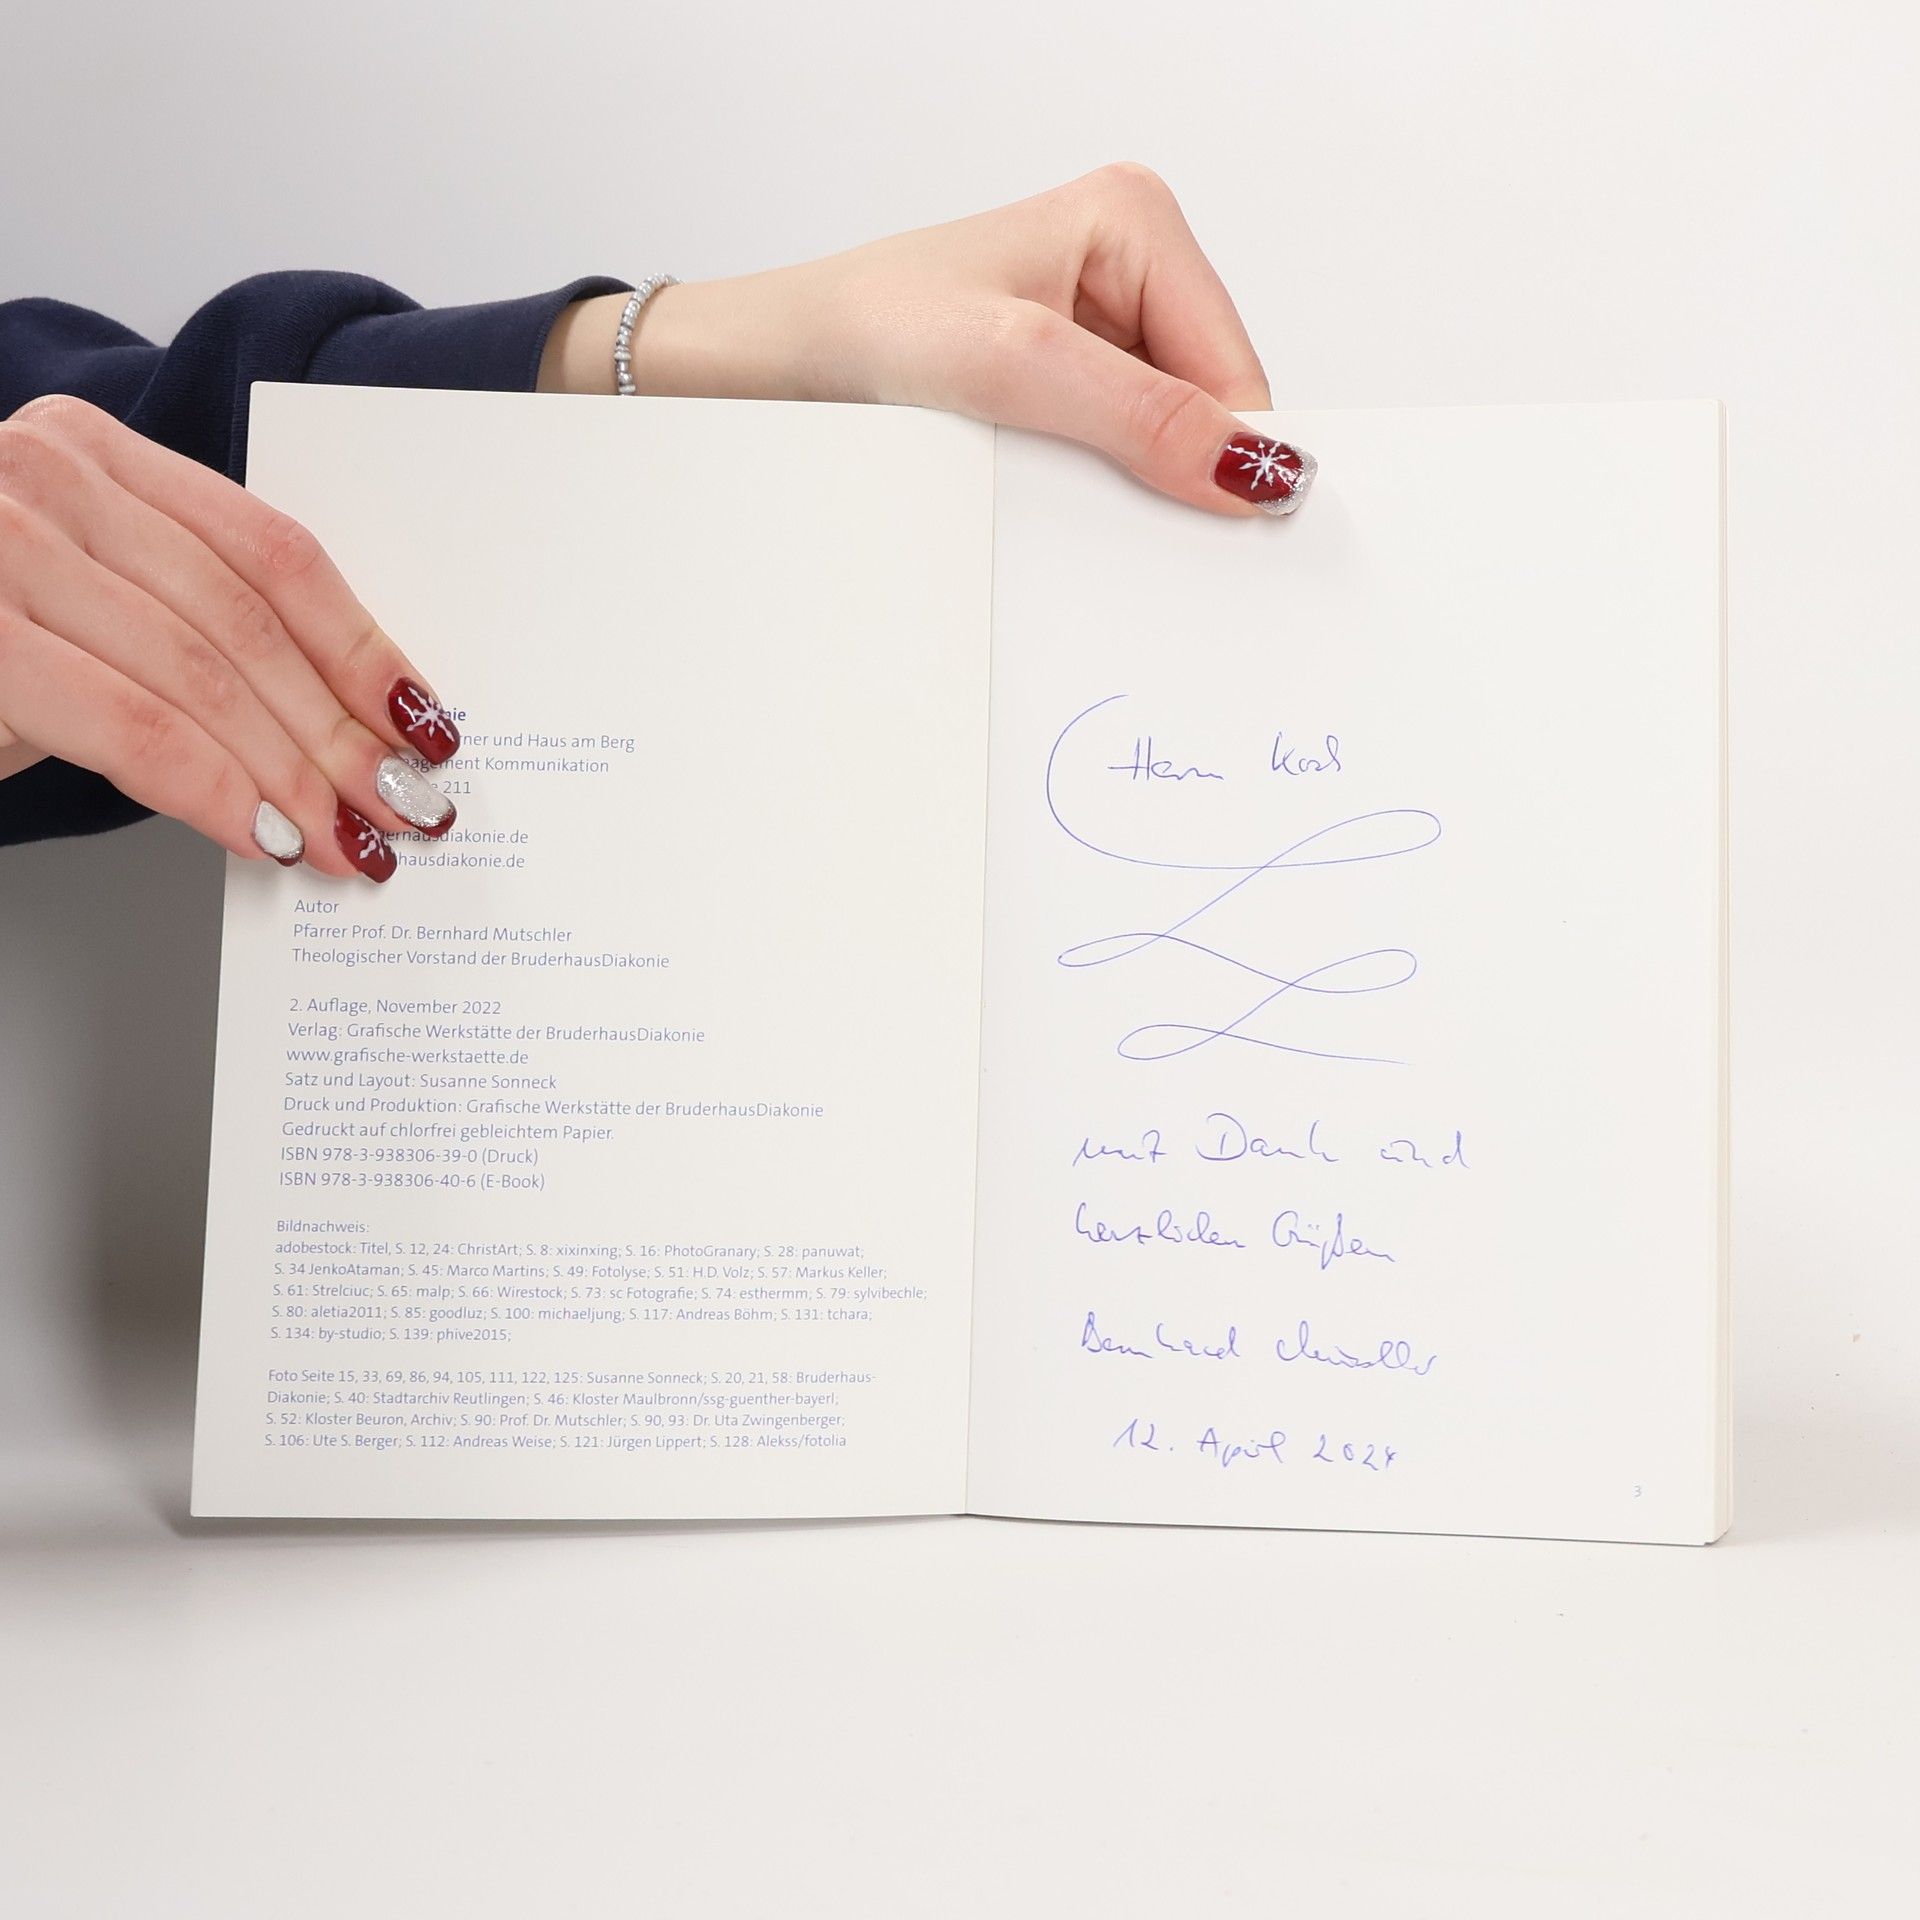 rner und Haus am Berg
Kommunikation
211
diakonie.de
hausdiakonie.de
Autor
Pfarrer Prof. Dr. Bernhard Mutschler
Theologischer Vorstand der BruderhausDiakonie
2. Auflage, November 2022
Verlag: Grafische Werkstätte der BruderhausDiakonie
www.grafische-werkstaette.de
Satz und Layout: Susanne Sonneck
Druck und Produktion: Grafische Werkstätte der BruderhausDiakonie
Gedruckt auf chlorfrei gebleichtem Papier.
ISBN 978-3-938306-39-0 (Druck)
ISBN 978-3-938306-40-6 (E-Book)
Bildnachweis:
adobestock: Titel, S. 12, 24: ChristArt; S. 8: xixinxing; S. 16: PhotoGranary; S. 28: panuwat;
S. 34 JenkoAtaman; S. 45: Marco Martins; S. 49: Fotolyse; S. 51: H.D. Volz; S. 57: Markus Keller;
S. 61: Strelciuc; S. 65: malp; S. 66: Wirestock; S. 73: sc Fotografie; S. 74: esthermm; S. 79: sylvibechle;
S. 80: aletia2011; S. 85: goodluz; S. 100: michaeljung; S. 117: Andreas Böhm; S. 131: tchara;
S. 134: by-studio; S. 139: phive2015;
Foto Seite 15, 33, 69, 86, 94, 105, 111, 122, 125: Susanne Sonneck; S. 20, 21, 58: Bruderhaus-
Diakonie; S. 40: Stadtarchiv Reutlingen; S. 46: Kloster Maulbronn/ssg-guenther-bayerl;
S. 52: Kloster Beuron, Archiv; S. 90: Prof. Dr. Mutschler; S. 90, 93: Dr. Uta Zwingenberger;
S. 106: Ute S. Berger; S. 112: Andreas Weise; S. 121: Jürgen Lippert; S. 128: Alekss/fotolia
Herrn Koch
mit Dank und
herzlichen Grüßen
Bernhard Mutschler
12. April 2024
3